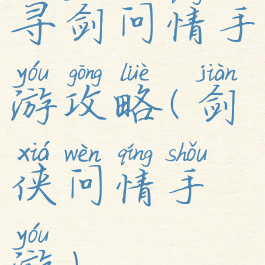 寻剑问情手
yóu gōng lüè jiàn
游攻略(剑
xiá wèn qíng shǒu
侠问情手
yóu
游)